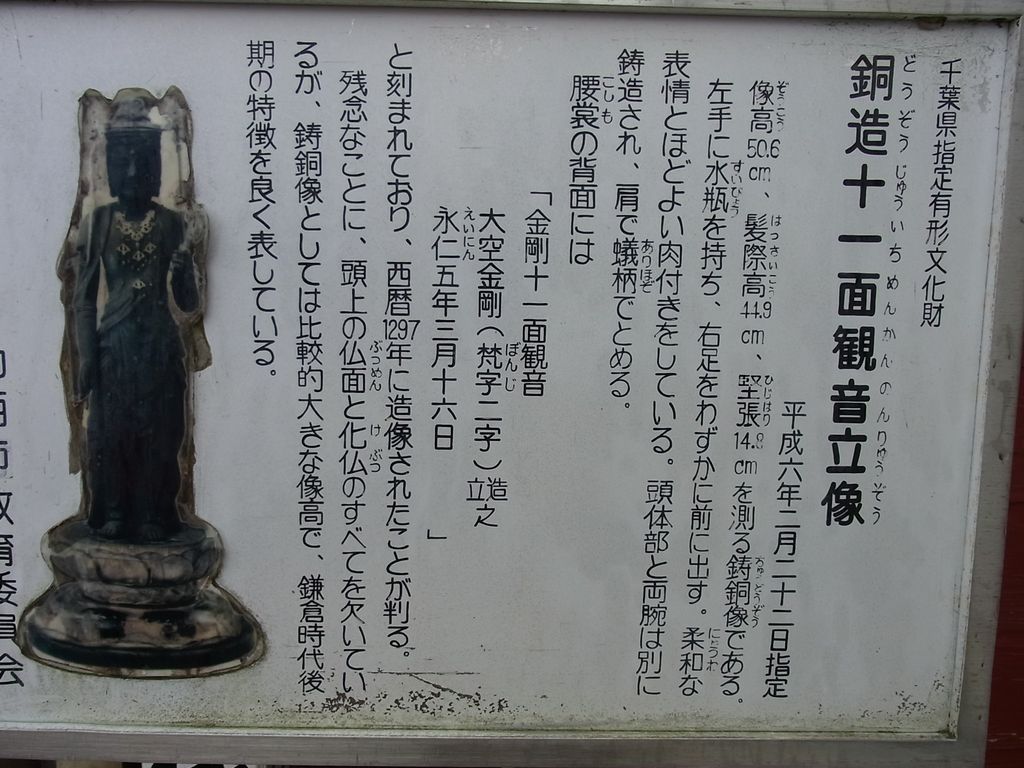 千葉県指定有形文化財
どうぞうじゅういちめんかんのんりゅうぞう
銅造十一面観音立像
平成六年二月二十二日指定
像高50.6cm、髪際高44.9cm、竪張14.8cmを測る鋳銅像である。
左手に水瓶を持ち、右足をわずかに前に出す。柔和な
表情とほどよい肉付きをしている。頭体部と両腕は別に
鋳造され、肩で蟻柄でとめる。
腰裳の背面には
「金剛十一面観音
大空金剛（梵字二字）造立之
永仁五年三月十六日　」
と刻まれており、西暦1297年に造像されたことが判る。
残念なことに、頭上の仏面と化仏のすべてを欠いてい
るが、鋳銅像としては比較的大きな像高で、鎌倉時代後
期の特徴を良く表している。
教育委員会